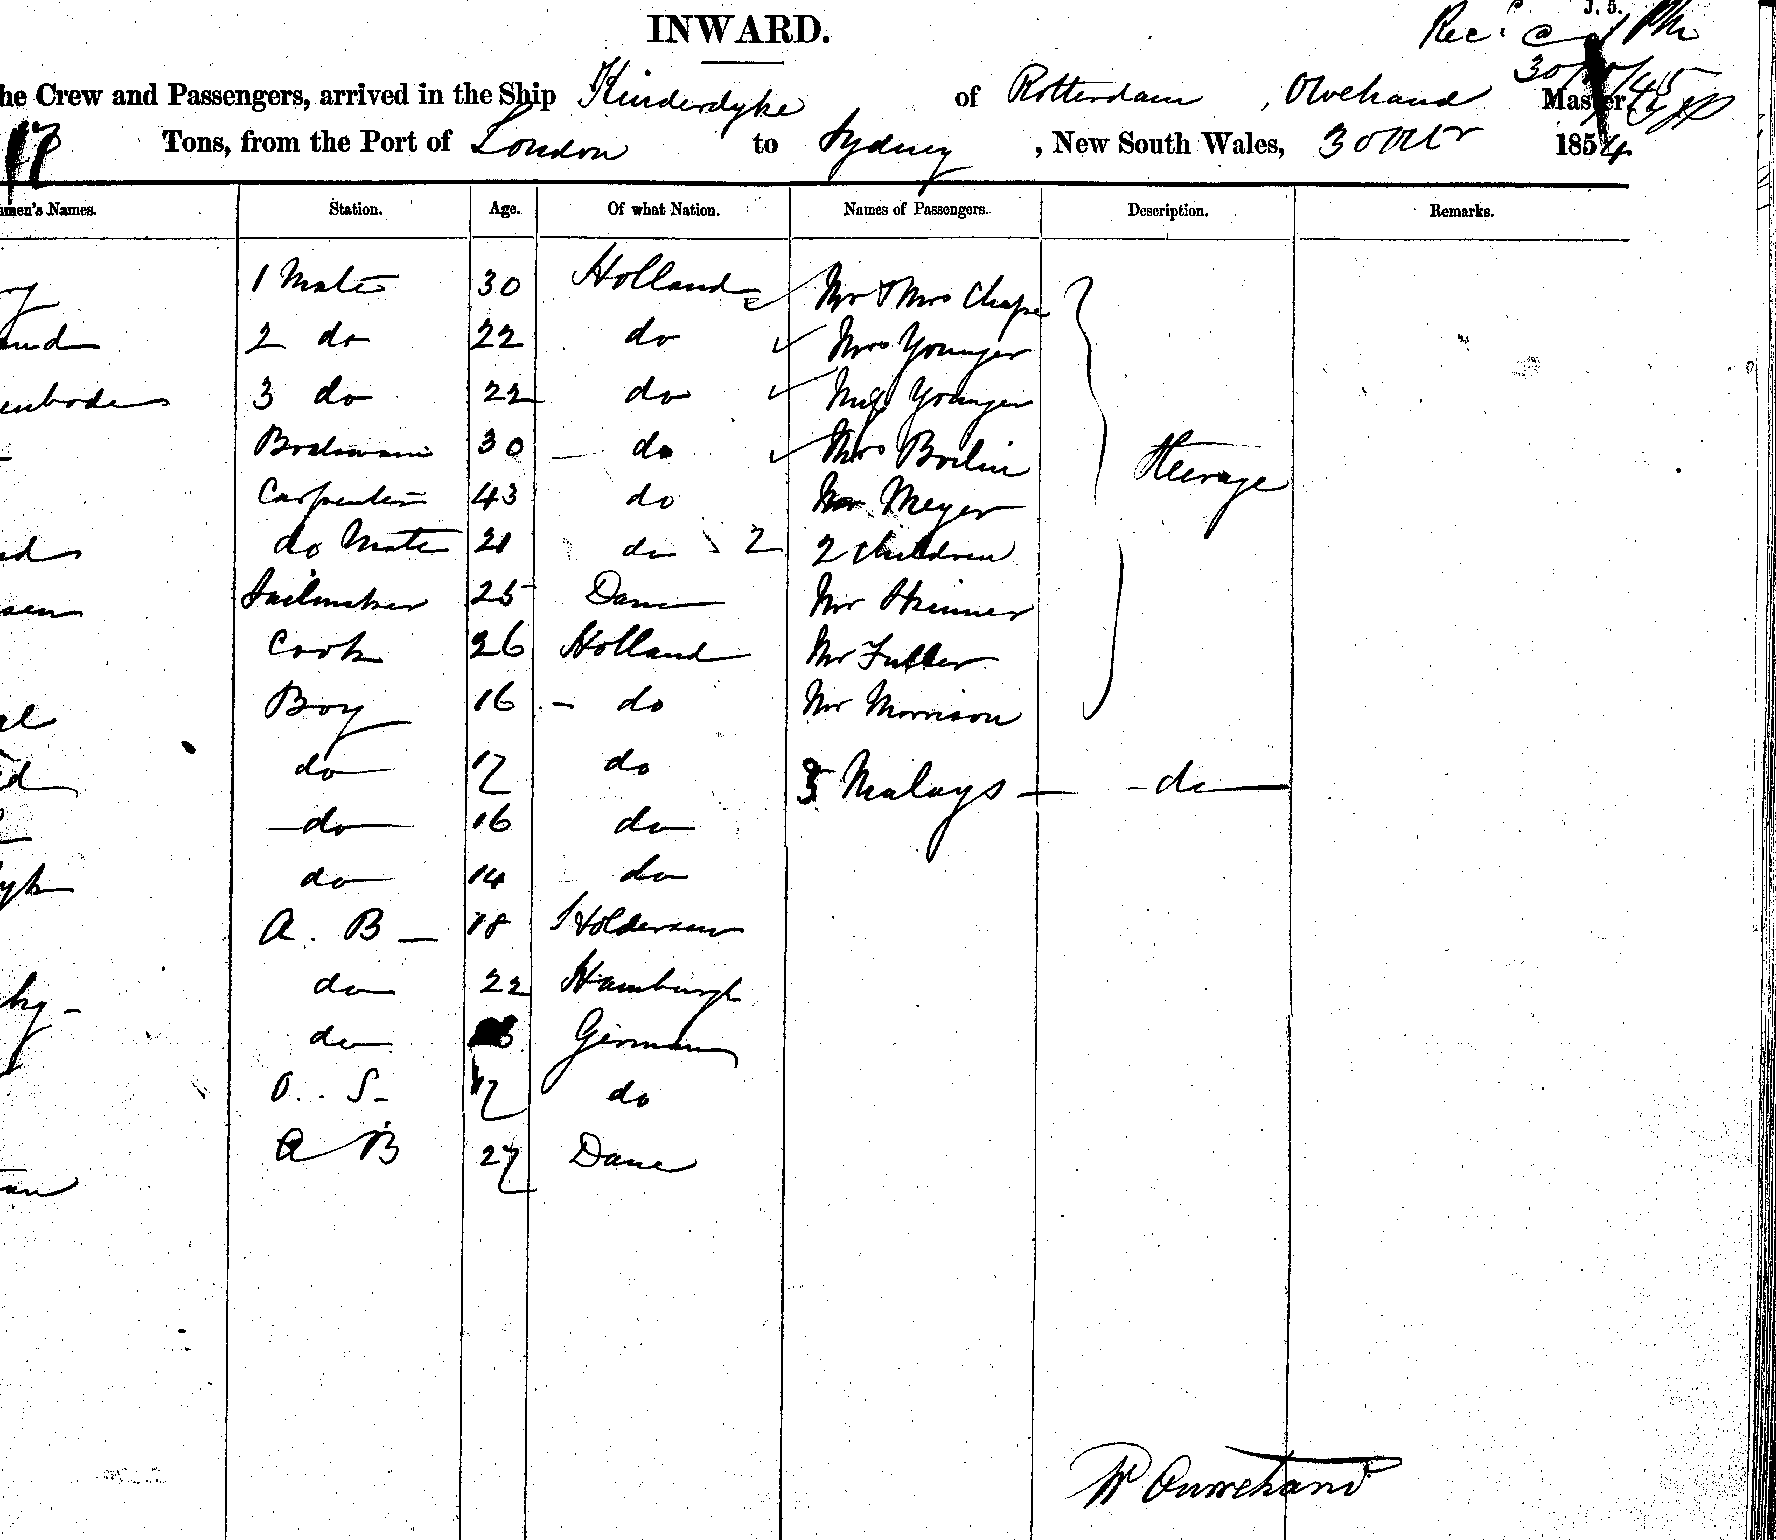 J. 5.
INWARD.
Rec. @ 1 PM
he Crew and Passengers, arrived in the Ship Kinderdyke of Rotterdam, Olvehand Master
17 Tons, from the Port of London to Sydney, New South Wales, 30 Octr 1854
men's Names. Station. Age. Of what Nation. Names of Passengers. Description. Remarks.
1 Mate 30 Holland Mr & Mrs Chape
and 2 do 22 do Mrs Younger
enbode 3 do 22 do Miss Younger
Boatswain 30 - do Mrs Boilin Steerage
Carpenter 43 do Mr Meyer
nd do Mate 21 do 2 2 children
sen Sailmaker 25 Dane Mr Skinner
Cook 26 Holland Mr Fuller
al Boy 16 - do Mr Morrison
d do 17 do 3 Malays - - do
do 16 do
yk do 14 do
A. B 18
hg - do 22 Hamburgh
do German
O. S. 17 do
A B 27 Dane
an
W Ouwehand